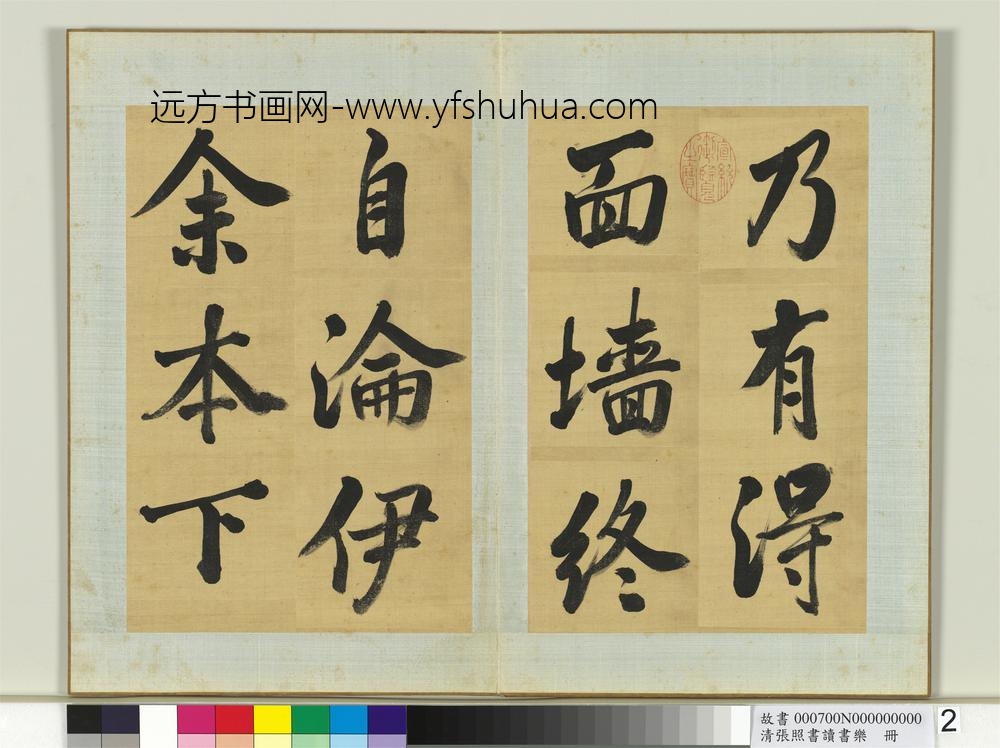 远方书画网-www.yfshuhua.com
乃有得
面墙终
自淪伊
余本下
宣統御覽之寶
故書 000700N000000000
清張照書讀書樂 冊
2